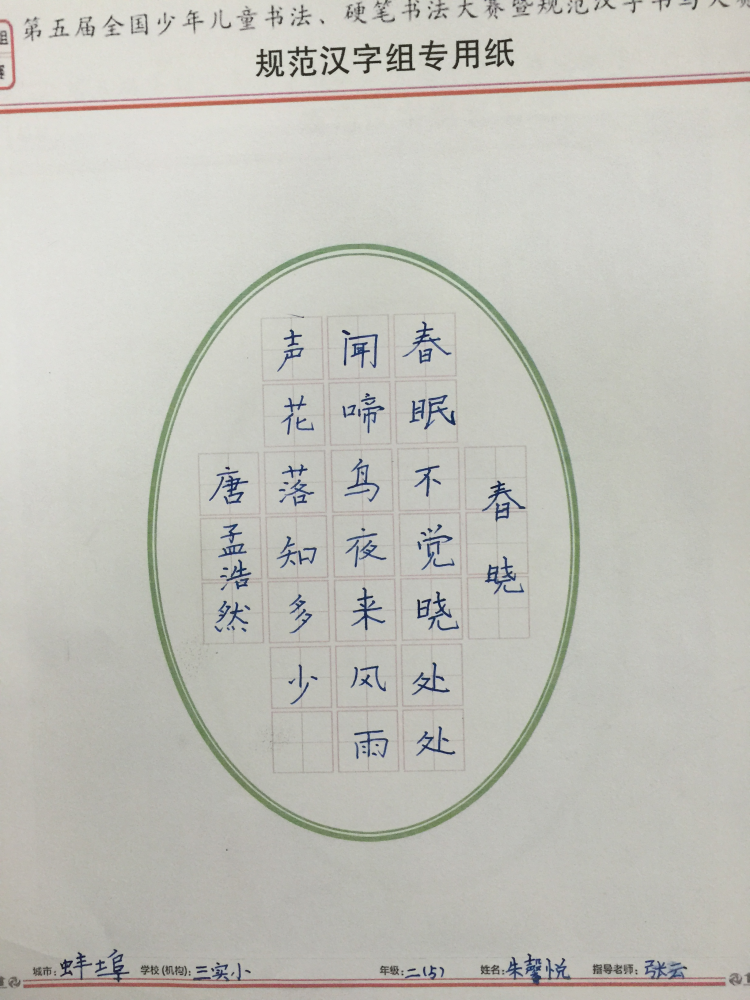 第五届全国少年儿童书法、硬笔书法大赛暨规范汉字书写大赛
规范汉字组专用纸
春晓
春眠不觉晓处处
闻啼鸟夜来风雨
声花落知多少
唐孟浩然
城市：蚌埠 学校(机构)：三实小 年级：二(5) 姓名：朱馨悦 指导老师：张云